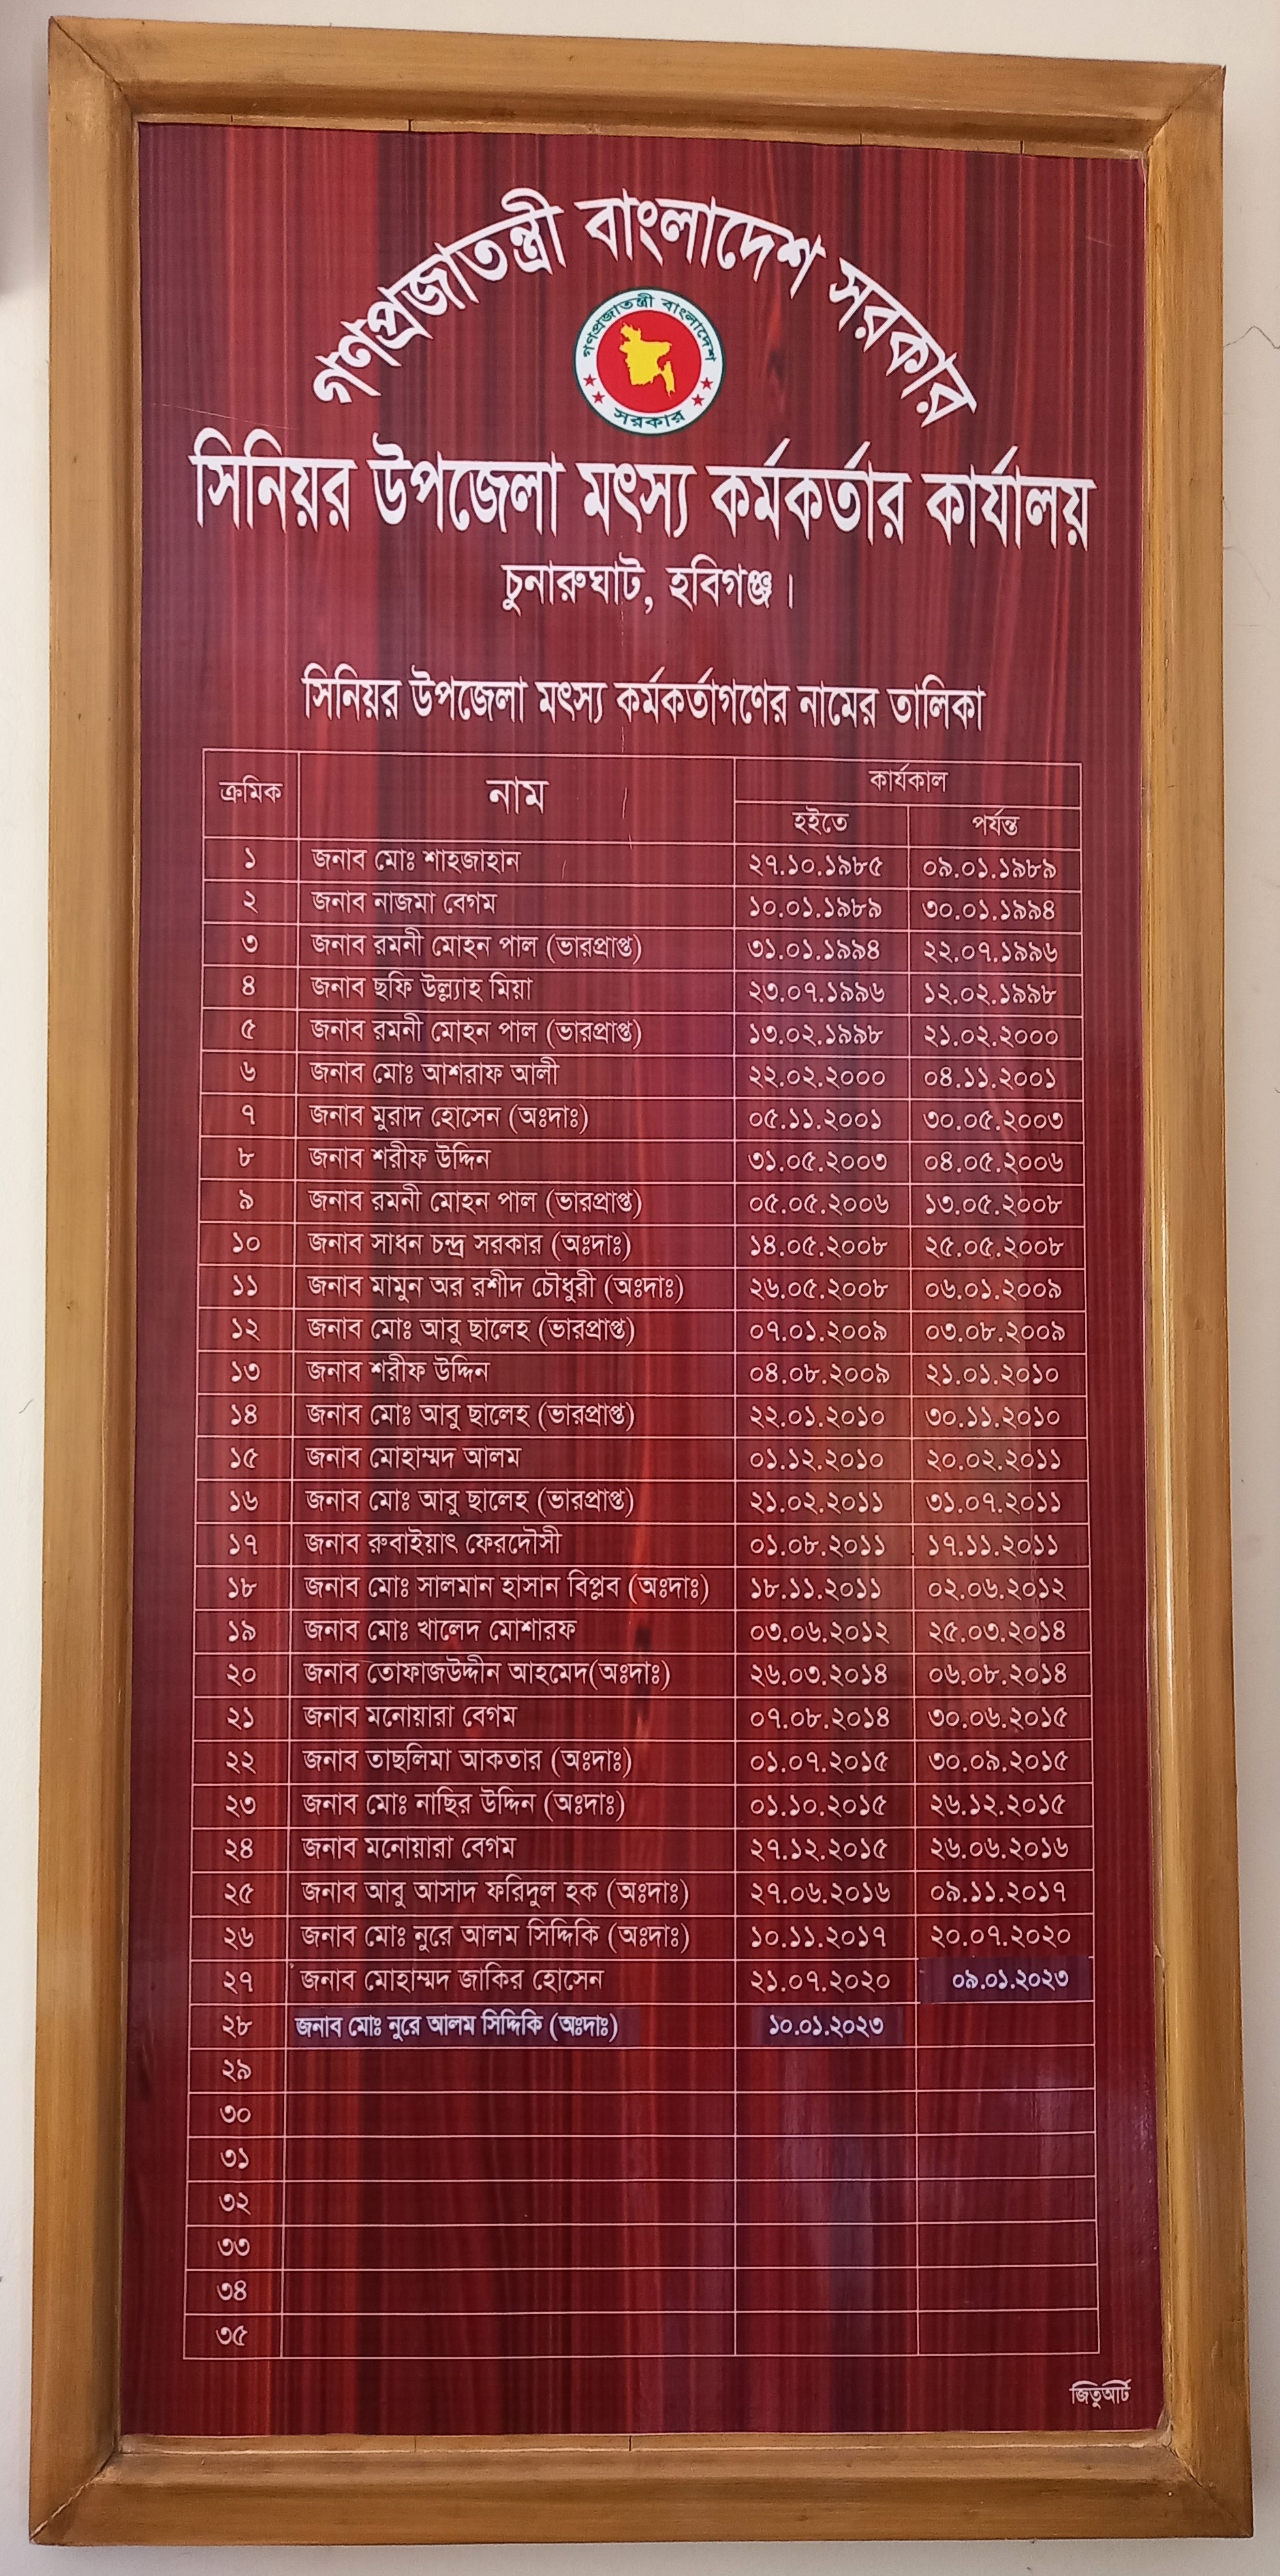 গণপ্রজাতন্ত্রী বাংলাদেশ সরকার
গণপ্রজাতন্ত্রী বাংলাদেশ
সরকার
সিনিয়র উপজেলা মৎস্য কর্মকর্তার কার্যালয়
চুনারুঘাট, হবিগঞ্জ।
সিনিয়র উপজেলা মৎস্য কর্মকর্তাগণের নামের তালিকা
ক্রমিক নাম কার্যকাল
হইতে পর্যন্ত
১ জনাব মোঃ শাহজাহান ২৭.১০.১৯৮৫ ০৯.০১.১৯৮৯
২ জনাব নাজমা বেগম ১০.০১.১৯৮৯ ৩০.০১.১৯৯৪
৩ জনাব রমনী মোহন পাল (ভারপ্রাপ্ত) ৩১.০১.১৯৯৪ ২২.০৭.১৯৯৬
৪ জনাব ছফি উল্ল্যাহ মিয়া ২৩.০৭.১৯৯৬ ১২.০২.১৯৯৮
৫ জনাব রমনী মোহন পাল (ভারপ্রাপ্ত) ১৩.০২.১৯৯৮ ২১.০২.২০০০
৬ জনাব মোঃ আশরাফ আলী ২২.০২.২০০০ ০৪.১১.২০০১
৭ জনাব মুরাদ হোসেন (অঃদাঃ) ০৫.১১.২০০১ ৩০.০৫.২০০৩
৮ জনাব শরীফ উদ্দিন ৩১.০৫.২০০৩ ০৪.০৫.২০০৬
৯ জনাব রমনী মোহন পাল (ভারপ্রাপ্ত) ০৫.০৫.২০০৬ ১৩.০৫.২০০৮
১০ জনাব সাধন চন্দ্র সরকার (অঃদাঃ) ১৪.০৫.২০০৮ ২৫.০৫.২০০৮
১১ জনাব মামুন অর রশীদ চৌধুরী (অঃদাঃ) ২৬.০৫.২০০৮ ০৬.০১.২০০৯
১২ জনাব মোঃ আবু ছালেহ (ভারপ্রাপ্ত) ০৭.০১.২০০৯ ০৩.০৮.২০০৯
১৩ জনাব শরীফ উদ্দিন ০৪.০৮.২০০৯ ২১.০১.২০১০
১৪ জনাব মোঃ আবু ছালেহ (ভারপ্রাপ্ত) ২২.০১.২০১০ ৩০.১১.২০১০
১৫ জনাব মোহাম্মদ আলম ০১.১২.২০১০ ২০.০২.২০১১
১৬ জনাব মোঃ আবু ছালেহ (ভারপ্রাপ্ত) ২১.০২.২০১১ ৩১.০৭.২০১১
১৭ জনাব রুবাইয়াৎ ফেরদৌসী ০১.০৮.২০১১ ১৭.১১.২০১১
১৮ জনাব মোঃ সালমান হাসান বিপ্লব (অঃদাঃ) ১৮.১১.২০১১ ০২.০৬.২০১২
১৯ জনাব মোঃ খালেদ মোশারফ ০৩.০৬.২০১২ ২৫.০৩.২০১৪
২০ জনাব তোফাজউদ্দীন আহমেদ(অঃদাঃ) ২৬.০৩.২০১৪ ০৬.০৮.২০১৪
২১ জনাব মনোয়ারা বেগম ০৭.০৮.২০১৪ ৩০.০৬.২০১৫
২২ জনাব তাছলিমা আকতার (অঃদাঃ) ০১.০৭.২০১৫ ৩০.০৯.২০১৫
২৩ জনাব মোঃ নাছির উদ্দিন (অঃদাঃ) ০১.১০.২০১৫ ২৬.১২.২০১৫
২৪ জনাব মনোয়ারা বেগম ২৭.১২.২০১৫ ২৬.০৬.২০১৬
২৫ জনাব আবু আসাদ ফরিদুল হক (অঃদাঃ) ২৭.০৬.২০১৬ ০৯.১১.২০১৭
২৬ জনাব মোঃ নুরে আলম সিদ্দিকি (অঃদাঃ) ১০.১১.২০১৭ ২০.০৭.২০২০
২৭ জনাব মোহাম্মদ জাকির হোসেন ২১.০৭.২০২০ ০৯.০১.২০২৩
২৮ জনাব মোঃ নুরে আলম সিদ্দিকি (অঃদাঃ) ১০.০১.২০২৩
২৯
৩০
৩১
৩২
৩৩
৩৪
৩৫
জিতুআর্ট